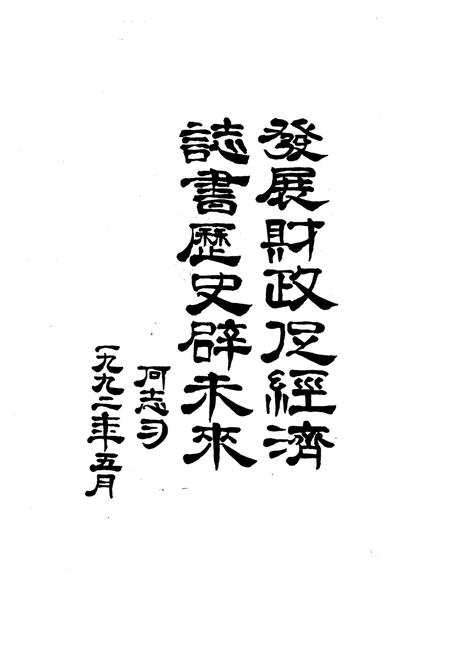 發展財政促經濟
誌書歷史辟未來
何志習
一九九二年五月